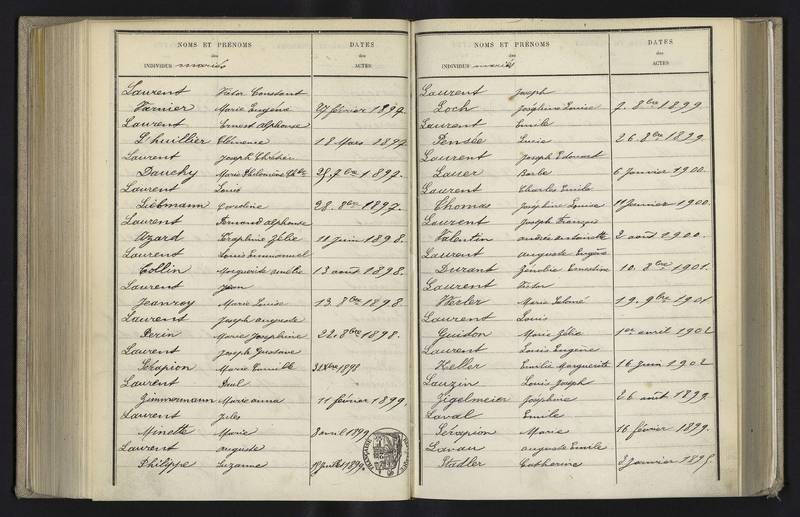 NOMS ET PRÉNOMS DATES
des des
INDIVIDUS mariés ACTES
Laurent Victor Constant
Varnier Marie Eugénie 27 février 1897.
Laurent Ernest Alphonse
L'huillier Clémence 18 Mars 1897
Laurent Joseph Chrétien
Dauchy Marie Philomène 1897.
Laurent Louis
Liebmann Caroline 28. 8bre 1897.
Laurent Fernand Alphonse
Azard Séraphine Zélie 11 juin 1898.
Laurent Louis Emmanuel
Collin Marguerite Amélie 13 août 1898.
Laurent Jean
Jeanroy Marie Louise 13. 8bre 1898
Laurent Joseph Auguste
Perin Marie Joséphine 22. 8bre 1898.
Laurent Joseph Gustave
Sérapion Marie 1898
Laurent Paul
Zimmermann Marie Anna 11 février 1899.
Laurent Jules
Minette Marie 8 avril 1899
Laurent Auguste
Philippe Suzanne 1899.
NOMS ET PRÉNOMS DATES
des des
INDIVIDUS mariés ACTES
Laurent Joseph
Loch Joséphine Louise 7. 8bre 1899
Laurent Emile
Pensée Lucie 26. 8bre 1899.
Laurent Joseph Edouard
Lauer Barbe 6 Janvier 1900.
Laurent Charles Emile
Thomas Joséphine Louise 11 février 1900.
Laurent Joseph François
Valentin Andrée Antoinette 2 août 1900.
Laurent Auguste Eugène
Durant Zénobie Ernestine 10. 8bre 1901.
Laurent Victor
Wexler Marie Salomé 19. 9bre 1901
Laurent Louis
Guidon Marie Zélie 1er avril 1902
Laurent Louis Eugène
Keller Emilie Marguerite 16 Juin 1902
Lauzin Louis Joseph
Zigelmeier Joséphine 26 août 1899.
Laval Emile
Sérapion Marie 16 février 1899.
Lavau Auguste Emile
Stadler Catherine 2 Janvier 1895.